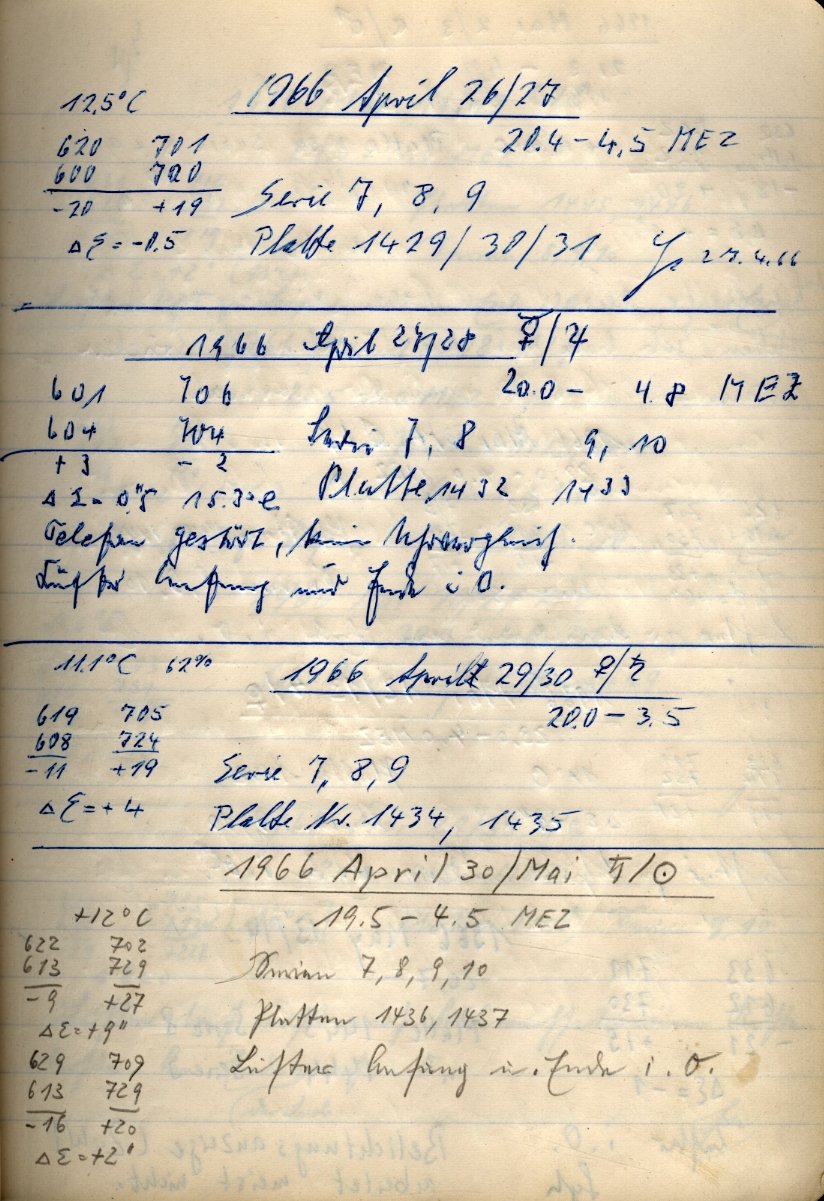 12,5°C 1966 April 26/27
620 701 20.4 – 4,5 MEZ
600 720
-20 +19 Serie 7, 8, 9
Δε = -0.5 Platte 1429/30/31 27.4.66
1966 April 27/28 ☿/♃
601 706 20.0 – 4.8 MEZ
604 704 Serie 7, 8 9, 10
+3 -2
Δε = 0."5 15.3°C Platte 1432 1433
Telefon gestört, kein Uhrvergleich.
Lüfter Anfang und Ende i.O.
11.1°C 62% 1966 April 29/30 ♀/♄
619 705 20.0 – 3.5
608 724
-11 +19 Serie 7, 8, 9
Δε = +4 Platte Nr. 1434, 1435
1966 April 30/Mai ♄/☉
+12°C 19.5 – 4.5 MEZ
622 702
613 729 Serien 7, 8, 9, 10
-9 +27
Δε = +9" Platten 1436, 1437
629 709 Lüfter Anfang u. Ende i.O.
613 729
-16 +20
Δε = +2"